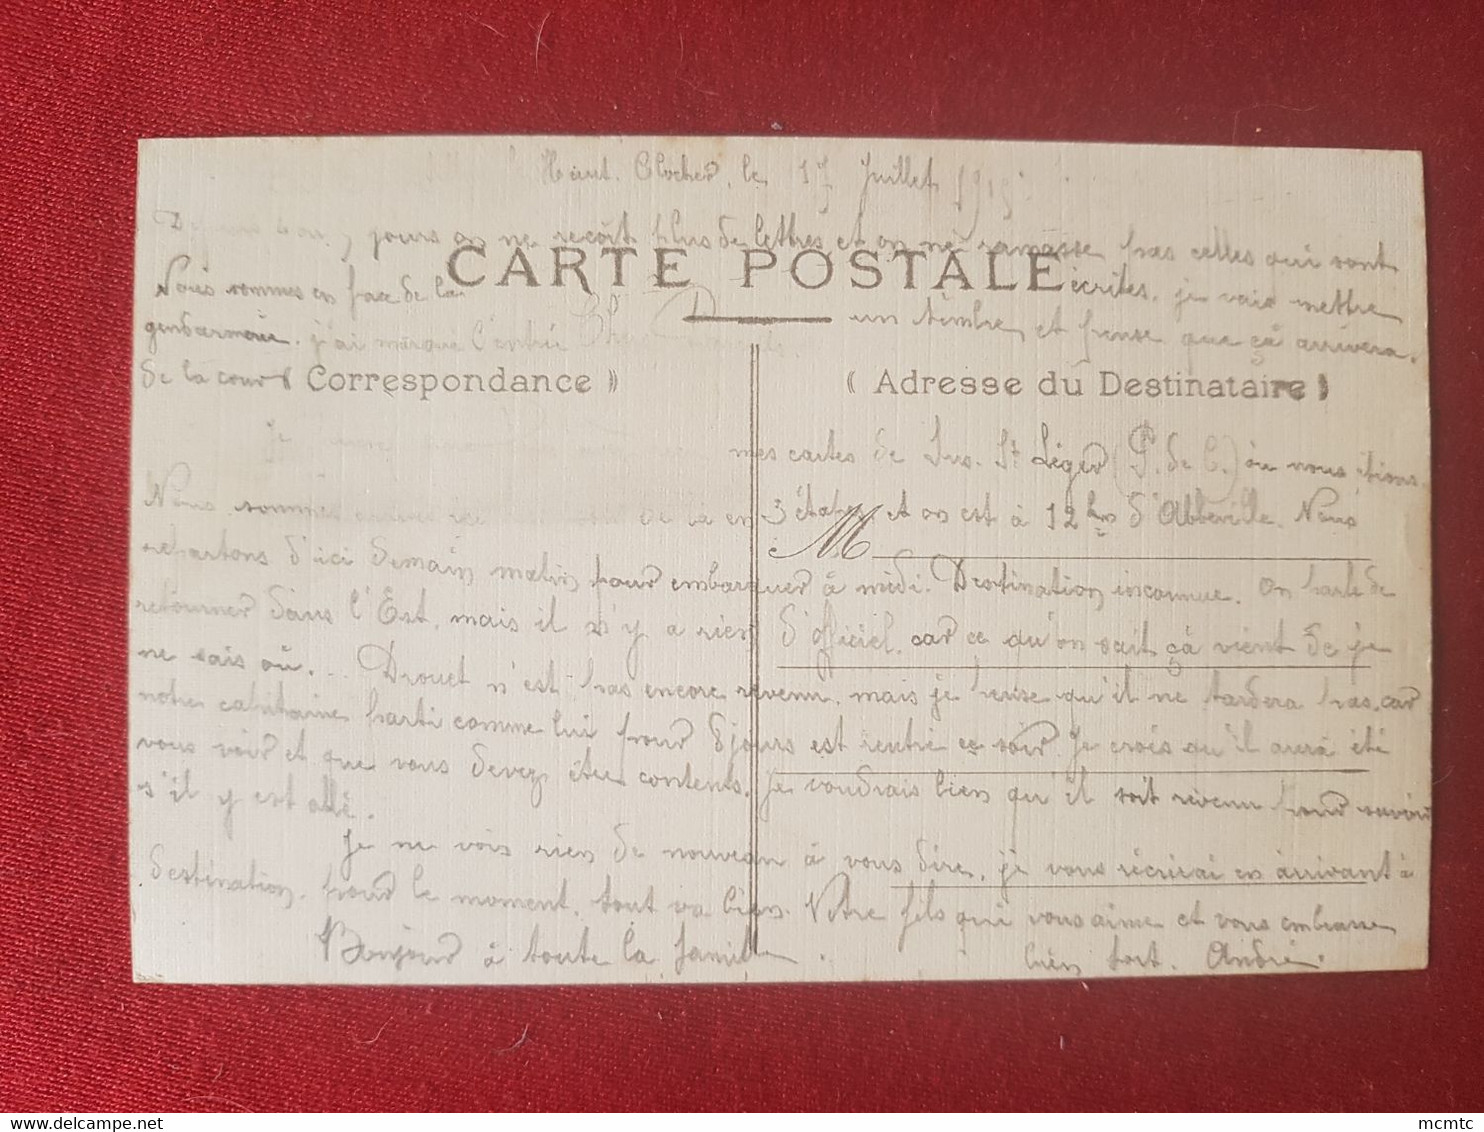 Haut. Clocher, le 17 Juillet 1915
jours on ne reçoit plus de lettres et on ne ramasse pas celles qui sont
CARTE POSTALE
écrites, je vais mettre
Nous sommes en face de la
un timbre et pense que çà arrivera.
gendarmerie. j'ai marqué l'entrée
de la cour
( Correspondance )
( Adresse du Destinataire )
je
mes cartes de Sus. St Léger (P. de C.) où nous étions.
Nous sommes de là en 3 étapes et on est à 12 km d'Abbeville. Nous
M
repartons d'ici demain matin pour embarquer à midi. Destination inconnue. On parle de
retourner dans l'Est, mais il n'y a rien d'officiel, car ce qu'on sait çà vient de je
ne sais où... Drouet n'est pas encore revenu, mais je pense qu'il ne tardera pas, car
notre capitaine parti comme lui pour 8 jours est rentré ce soir. Je crois qu'il aura été
vous voir et que vous devez être contents. Je voudrais bien qu'il soit revenu pour savoir
s'il y est allé.
Je ne vois rien de nouveau à vous dire, je vous récrirai en arrivant à
destination. pour le moment, tout va bien. Votre fils qui vous aime et vous embrasse
Bonjour à toute la famille.
bien fort. André.
mcmtc